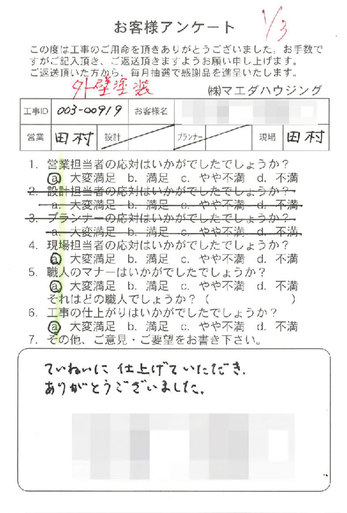 お客様アンケート
1/3
この度は工事のご用命を頂きありがとうございました。お手数で
すがご記入頂き、ご返送頂きますようお願い申し上げます。
ご返送頂いた方から、毎月抽選で感謝品を進呈いたします。
外壁塗装
㈱マエダハウジング
工事ID 003-00919 お客様名
営業 田村 設計 プランナー 現場 田村
1. 営業担当者の応対はいかがでしたでしょうか?
a. 大変満足 b. 満足 c. やや不満 d. 不満
2. 設計担当者の応対はいかがでしたでしょうか?
a. 大変満足 b. 満足 c. やや不満 d. 不満
3. プランナーの応対はいかがでしたでしょうか?
a. 大変満足 b. 満足 c. やや不満 d. 不満
4. 現場担当者の応対はいかがでしたでしょうか?
a. 大変満足 b. 満足 c. やや不満 d. 不満
5. 職人のマナーはいかがでしたでしょうか?
a. 大変満足 b. 満足 c. やや不満 d. 不満
それはどの職人でしょうか?( )
6. 工事の仕上がりはいかがでしたでしょうか?
a. 大変満足 b. 満足 c. やや不満 d. 不満
7. その他、ご意見・ご要望をお書き下さい。
ていねいに仕上げていただき、
ありがとうございました。